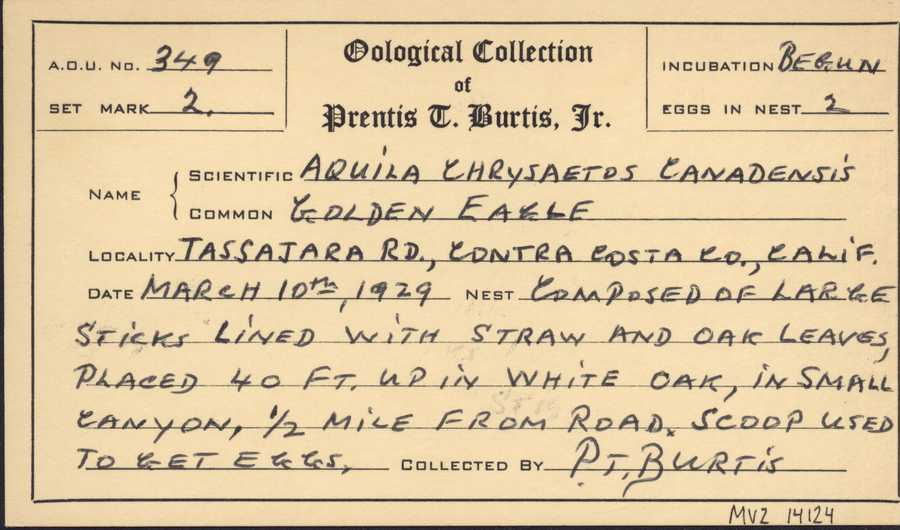 A.O.U. No. 349
SET MARK 2.
Oological Collection
of
Prentis T. Burtis, Jr.
INCUBATION BEGUN
EGGS IN NEST 2
NAME
SCIENTIFIC AQUILA CHRYSAETOS CANADENSIS
COMMON GOLDEN EAGLE
LOCALITY TASSAJARA RD., CONTRA COSTA CO., CALIF.
DATE MARCH 10th, 1929 NEST COMPOSED OF LARGE
STICKS LINED WITH STRAW AND OAK LEAVES,
PLACED 40 FT. UP IN WHITE OAK, IN SMALL
CANYON, 1/2 MILE FROM ROAD. SCOOP USED
TO GET EGGS, COLLECTED BY P.T. BURTIS
MVZ 14124